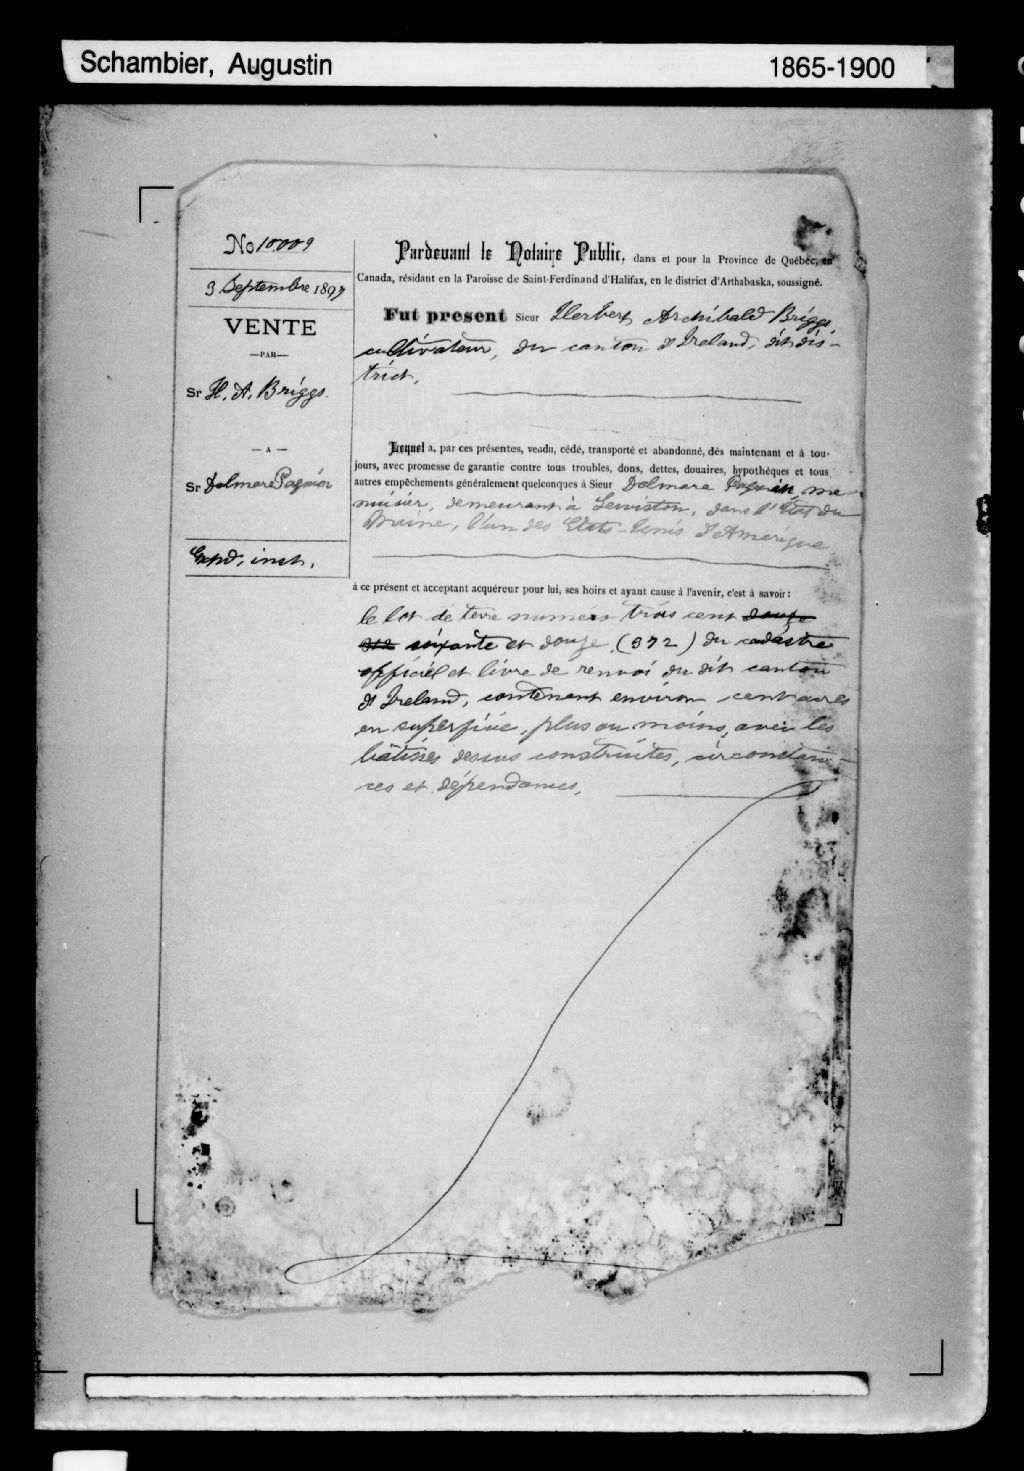 Schambier, Augustin 1865-1900
No 10009
3 Septembre 1897
VENTE
—PAR—
Sr H. A. Briggs.
— A —
Sr Delmare Paquin
Expd. inst.
Pardevant le Notaire Public, dans et pour la Province de Québec, en
Canada, résidant en la Paroisse de Saint-Ferdinand d'Halifax, en le district d'Arthabaska, soussigné.
Fut present Sieur Herbert Archibald Briggs,
cultivateur, du canton d'Ireland, dit dis-
trict.
Lequel a, par ces présentes, vendu, cédé, transporté et abandonné, dès maintenant et à tou-
jours, avec promesse de garantie contre tous troubles, dons, dettes, douaires, hypothèques et tous
autres empêchements généralement quelconques à Sieur Delmare Paquin me-
nuisier, demeurant à Lewiston, dans l'État du
Maine, l'un des États-Unis d'Amérique
à ce présent et acceptant acquéreur pour lui, ses hoirs et ayant cause à l'avenir, c'est à savoir :
le lot de terre numéro trois cent douze
soixante et douze (372) du cadastre
officiel et livre de renvoi du dit canton
d'Ireland, contenant environ cent acres
en superficie, plus ou moins, avec les
bâtisses dessus construites, circonstan-
ces et dépendances.